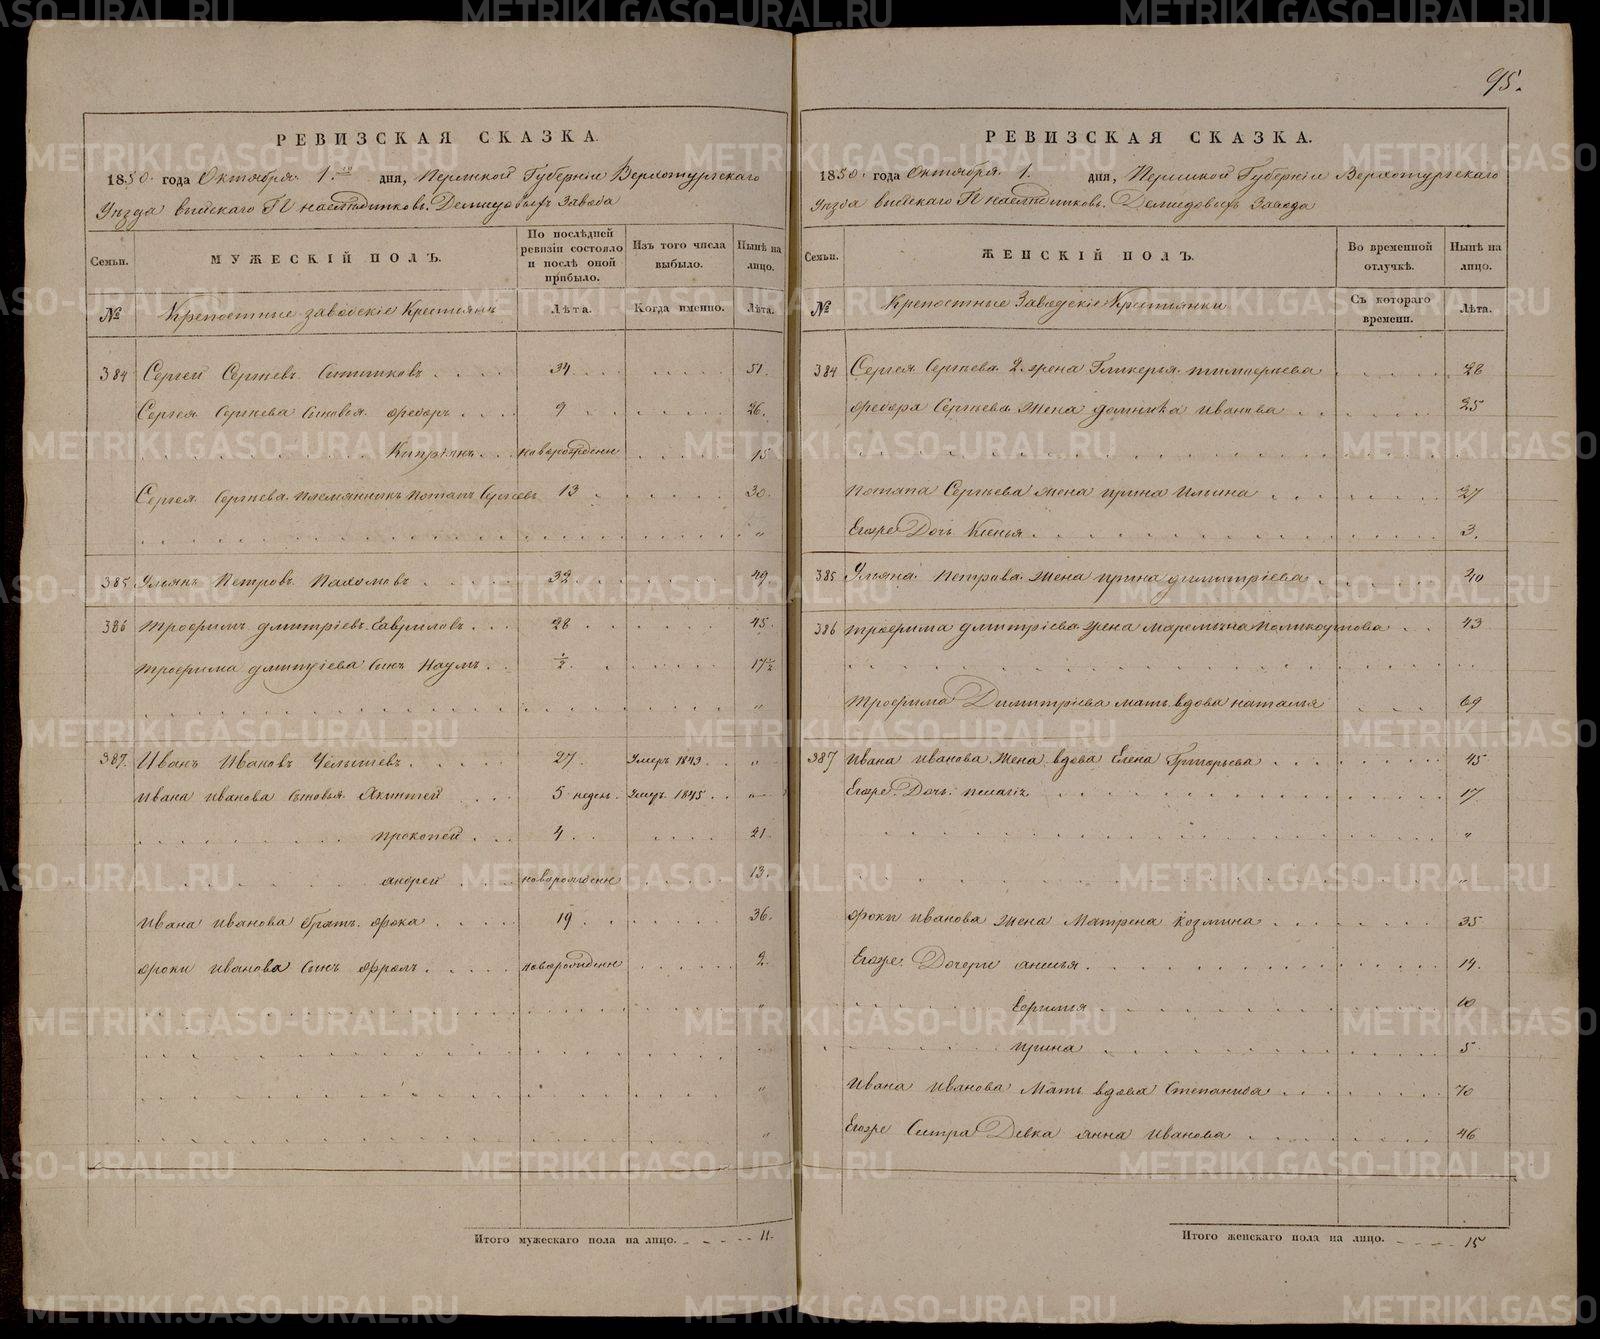 95.
РЕВИЗСКАЯ СКАЗКА.
1850. года Октября 1. дня, Пермской Губерніи Верхотурскаго
Уѣзда Выйскаго Г. наслѣдниковъ Демидовыхъ Завода
Семьи.
МУЖЕСКІЙ ПОЛЪ.
По послѣдней ревизіи состояло и послѣ оной прибыло.
Изъ того числа выбыло.
Нынѣ на лицо.
№
Крепостные заводскіе Крестьянъ
Лѣта.
Когда именно.
Лѣта.
384 Сергей Сергѣевъ 34 51.
Сергея Сергѣева Сыновья Ѳедоръ 9 26.
Кипріянъ новорожденъ 15
Сергея Сергѣева племянникъ Потапъ Сергѣевъ 13 30.
385 Ульянъ Петровъ Пахомовъ 32 49
386 Трофимъ Дмитріевъ Гавриловъ 28 45.
Трофима Дмитріева Сынъ Наумъ ½ 17½
387. Иванъ Ивановъ Челышевъ 27 Умеръ 1843
Ивана Иванова Сыновья Акинтей 5 недел. Умеръ 1845
Прокопей 4 21
Андрей новорожденъ 13.
Ивана Иванова братъ Фока 19 36.
Фоки Иванова Сынъ Фролъ новорожденъ 2.
Итого мужескаго пола на лицо. 11.
РЕВИЗСКАЯ СКАЗКА.
1850. года Октября 1. дня, Пермской Губерніи Верхотурскаго
Уѣзда Выйскаго Г. наслѣдниковъ Демидовыхъ Завода
Семьи.
ЖЕНСКІЙ ПОЛЪ.
Во временной отлучкѣ.
Нынѣ на лицо.
№
Крепостные Заводскіе Крестьянки
Съ котораго времени.
Лѣта.
384 Сергея Сергѣева 2. жена Гликерья 28
Ѳедора Сергѣева жена Домника Иванова 25
Потапа Сергѣева жена Ирина Ильина 27
Егоже Дочь Ксенья 3.
385 Ульяна Петрова жена Ирина Димитріева 40
386 Трофима Дмитріева жена Маремьяна Поликарпова 43
Трофима Димитріева мать вдова Наталья 69
387 Ивана Иванова Жена вдова Елена Григорьева 45
Егоже Дочь Пелагія 17
Фоки Иванова жена Матрена Козмина 35
Егоже Дочери Анисья 14.
Ефимья 10
Ирина 5.
Ивана Иванова Мать вдова Степанида 70
Егоже Сестра Девка Анна Иванова 46
Итого женскаго пола на лицо. 15
METRIKI.GASO-URAL.RU